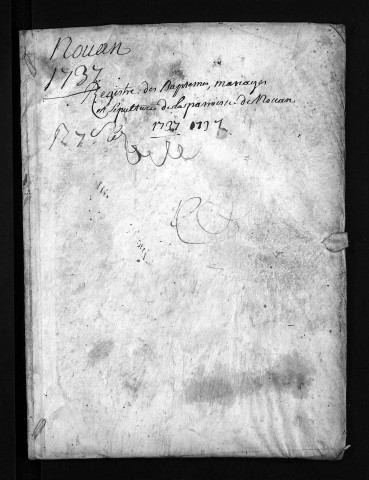 Nouan
1737
Registre des Baptemes, mariages
et sepultures de la parroisse de Nouan
1737 1737